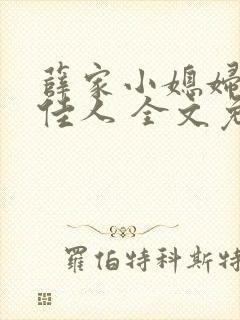 薛家小媳婦
佳人 全文免
羅伯特科斯特